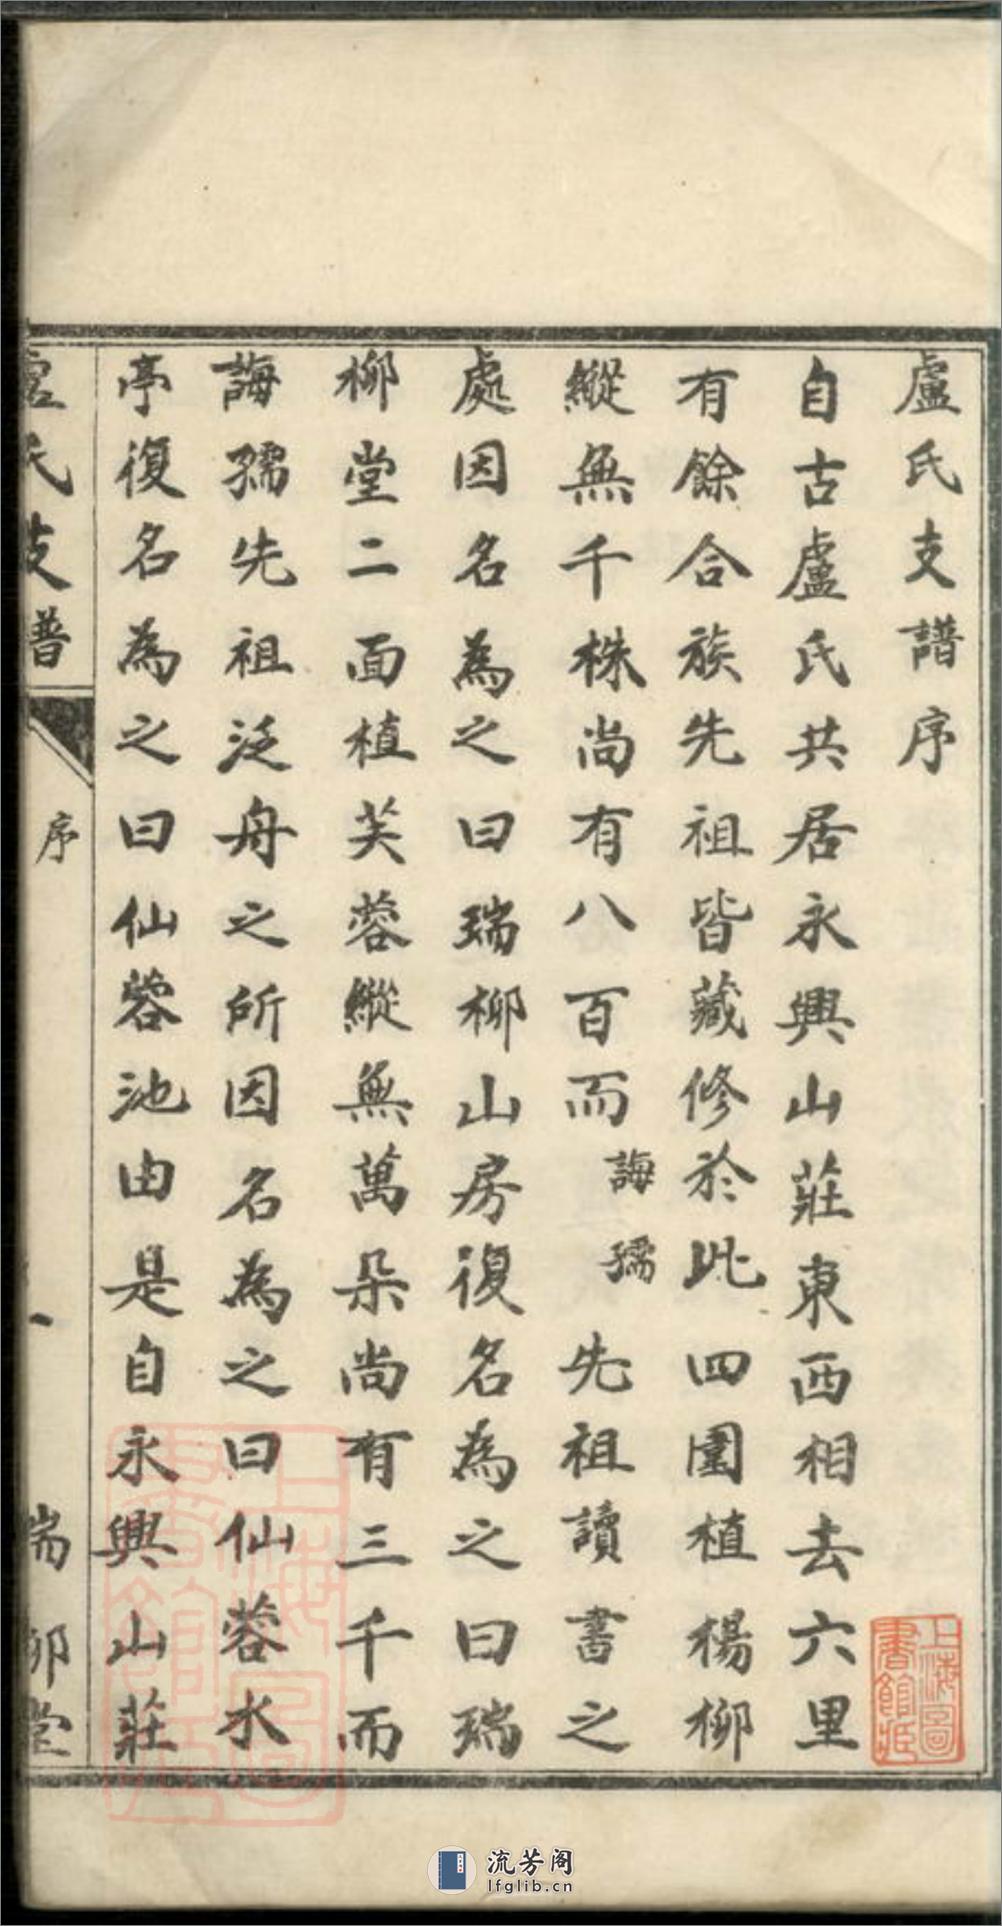 盧氏支譜序
自古盧氏共居永興山莊東西相去六里
有餘合族先祖皆藏修於此四圍植楊柳
縱無千株尚有八百而誨孺先祖讀書之
處因名為之曰瑞柳山房復名為之曰瑞
柳堂二面植芙蓉縱無萬朵尚有三千而
誨孺先祖泛舟之所因名為之曰仙蓉水
亭復名為之曰仙蓉池由是自永興山莊
盧氏支譜
序
一
瑞柳堂
上海圖書館藏
上海圖書館藏
流芳阁
lfglib.cn